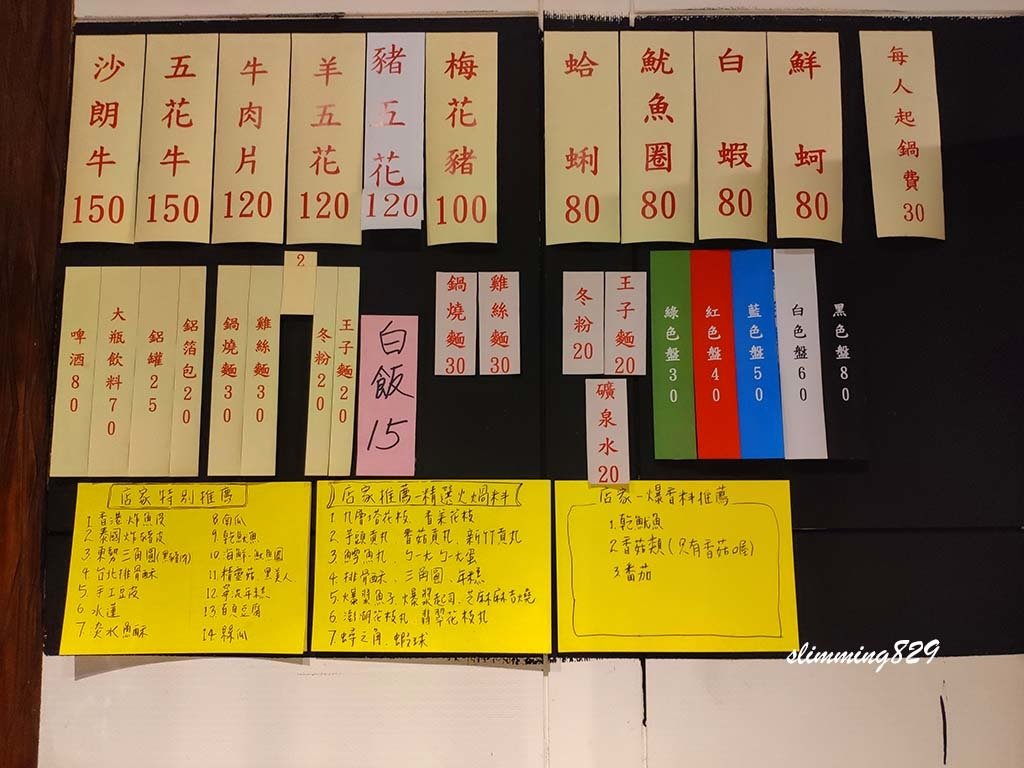 沙朗牛150
五花牛150
牛肉片120
羊五花120
豬五花120
梅花豬100
蛤蜊80
魷魚圈80
白蝦80
鮮蚵80
每人起鍋費30
啤酒80
大瓶飲料70
鋁罐25
鋁箔包20
鍋燒麵30
雞絲麵30
2
冬粉20
王子麵20
白飯15
鍋燒麵30
雞絲麵30
冬粉20
王子麵20
礦泉水20
綠色盤30
紅色盤40
藍色盤50
白色盤60
黑色盤80
店家特別推薦
1香港炸魚皮
2泰國炸豬皮
3.東勢三角圓
4台北排骨酥
5手工豆皮
6水蓮
7.淡水魚酥
8南瓜
9.乾魷魚
10.海鮮.魷魚圈
11.精靈菇.黑美人
12.寧波年糕
13百頁豆腐
14.絲瓜
店家推薦-精選火鍋料
1九層塔花枝.香菜花枝
2.芋頭貢丸 香菇貢丸.新竹貢丸
3鱈魚丸 ㄅㄧㄤˋㄅㄧㄤˋ蛋
4.排骨酥.三角圓.年糕
5爆漿魚子.爆漿起司.芝麻麻吉燒
6澎湖花枝丸.翡翠花枝丸
7蝦球
店家-爆香料推薦
1.乾魷魚
2香菇類(只有香菇喔)
3.番茄
slimming829